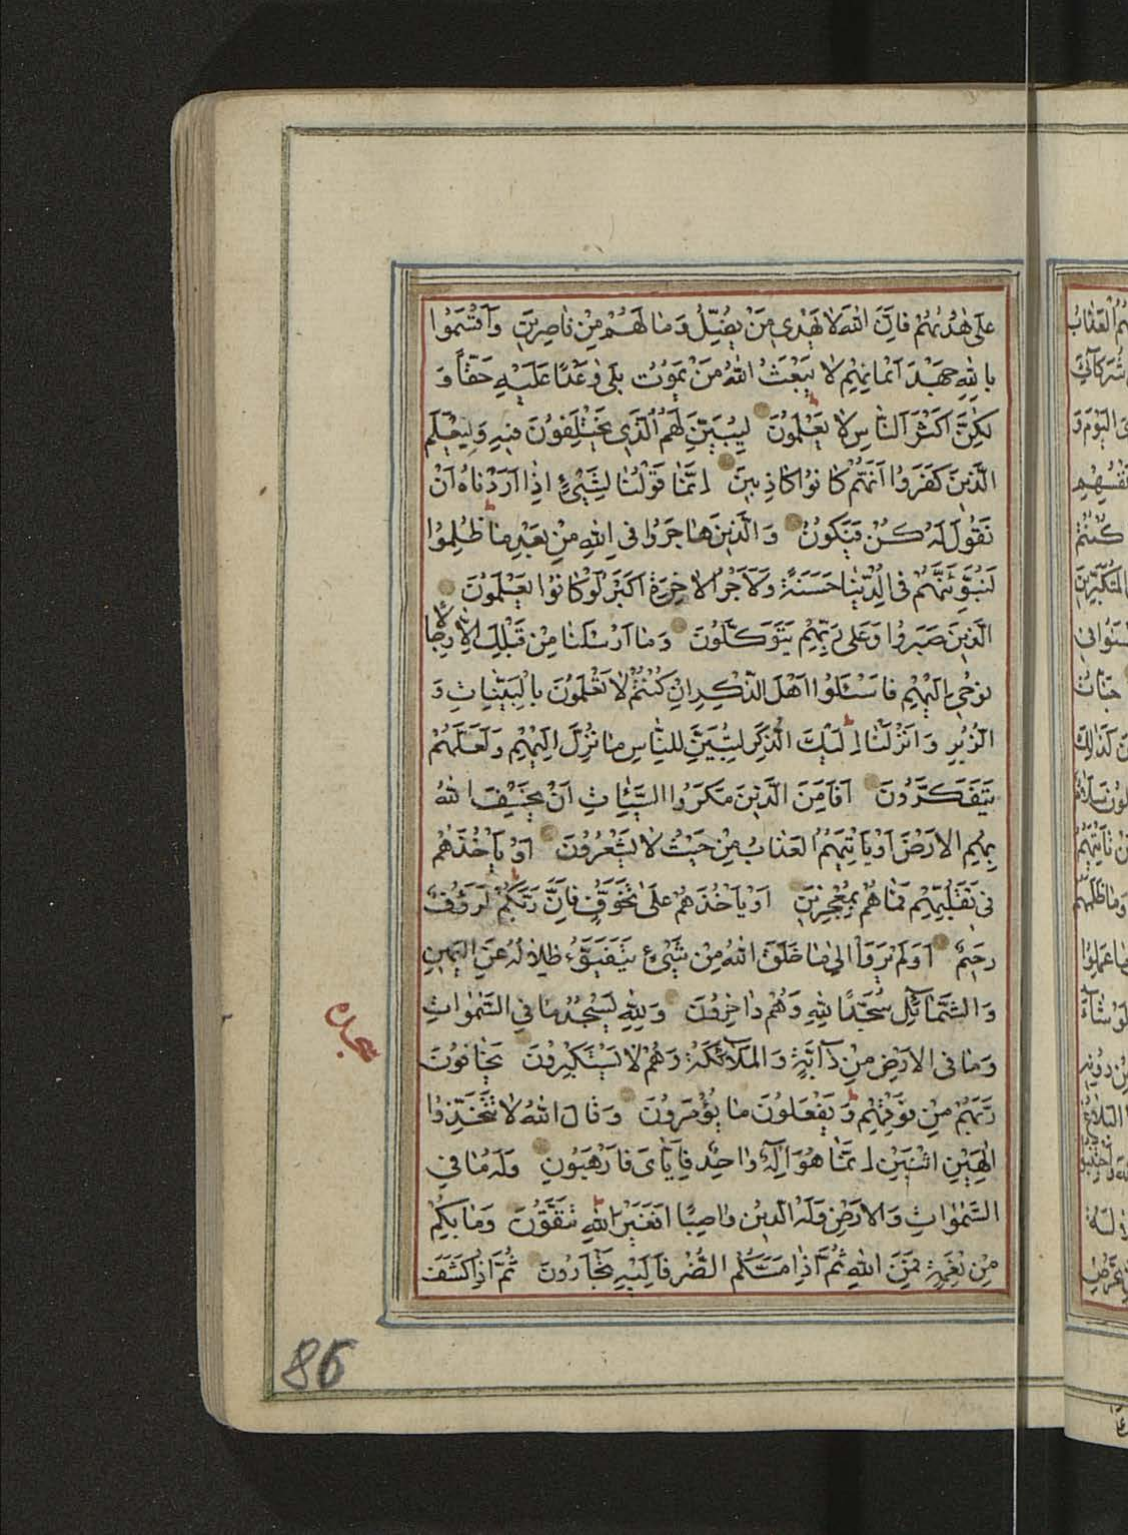 عَلىٰ هُدٰىهُمْ فَاِنَّ اللهَ لا يَهْدي مَنْ يُضِلُّ وَمٰا لَهُمْ مِنْ نٰاصِرينَ وَاَقْسَمُوا
بِاللهِ جَهْدَ اَيْمٰانِهِمْ لا يَبْعَثُ اللهُ مَنْ يَمُوتُ بَلىٰ وَعْدًا عَلَيْهِ حَقّاً وَ
لٰكِنَّ اَكْثَرَ النّٰاسِ لا يَعْلَمُونَ لِيُبَيِّنَ لَهُمُ الَّذي يَخْتَلِفُونَ فيهِ وَلِيَعْلَمَ
الَّذينَ كَفَرُوا اَنَّهُمْ كٰانُوا كٰاذِبينَ اِنَّمٰا قَوْلُنٰا لِشَيْءٍ اِذٰا اَرَدْنٰاهُ اَنْ
نَقُولَ لَهُ كُنْ فَيَكُونُ وَالَّذينَ هٰاجَرُوا فِي اللهِ مِنْ بَعْدِ مٰا ظُلِمُوا
لَنُبَوِّئَنَّهُمْ فِي الدُّنْيٰا حَسَنَةً وَلَاَجْرُ الاٰخِرَةِ اَكْبَرُ لَوْ كٰانُوا يَعْلَمُونَ
الَّذينَ صَبَرُوا وَعَلىٰ رَبِّهِمْ يَتَوَكَّلُونَ وَمٰا اَرْسَلْنٰا مِنْ قَبْلِكَ اِلّٰا رِجٰالاً
نُوحي اِلَيْهِمْ فَاسْئَلُوا اَهْلَ الذِّكْرِ اِنْ كُنْتُمْ لا تَعْلَمُونَ بِالْبَيِّنٰاتِ وَ
الزُّبُرِ وَاَنْزَلْنٰا اِلَيْكَ الذِّكْرَ لِتُبَيِّنَ لِلنّٰاسِ مٰا نُزِّلَ اِلَيْهِمْ وَلَعَلَّهُمْ
يَتَفَكَّرُونَ اَفَاَمِنَ الَّذينَ مَكَرُوا السَّيِّئٰاتِ اَنْ يَخْسِفَ اللهُ
بِهِمُ الاَرْضَ اَوْ يَاْتِيَهُمُ العَذٰابُ مِنْ حَيْثُ لا يَشْعُرُونَ اَوْ يَاْخُذَهُمْ
في تَقَلُّبِهِمْ فَمٰا هُمْ بِمُعْجِزينَ اَوْ يَاْخُذَهُمْ عَلىٰ تَخَوُّفٍ فَاِنَّ رَبَّكُمْ لَرَؤُفٌ
رَحيمٌ اَوَلَمْ يَرَوْا اِلىٰ مٰا خَلَقَ اللهُ مِنْ شَيْءٍ يَتَفَيَّؤُ ظِلالُهُ عَنِ اليَمينِ
وَالشَّمٰائِلِ سُجَّدًا لِلّٰهِ وَهُمْ دٰاخِرُونَ وَلِلّٰهِ يَسْجُدُ مٰا فِي السَّمٰوٰاتِ
وَمٰا فِي الاَرْضِ مِنْ دٰآبَّةٍ وَالمَلٰآئِكَةُ وَهُمْ لا يَسْتَكْبِرُونَ يَخٰافُونَ
سجده
رَبَّهُمْ مِنْ فَوْقِهِمْ وَيَفْعَلُونَ مٰا يُؤْمَرُونَ وَقٰالَ اللهُ لا تَتَّخِذُوا
اِلٰهَيْنِ اثْنَيْنِ اِنَّمٰا هُوَ اِلٰهٌ وٰاحِدٌ فَاِيّٰايَ فَارْهَبُونِ وَلَهُ مٰا فِي
السَّمٰوٰاتِ وَالاَرْضِ وَلَهُ الدّينُ وٰاصِبًا اَفَغَيْرَ اللهِ تَتَّقُونَ وَمٰا بِكُمْ
مِنْ نِعْمَةٍ فَمِنَ اللهِ ثُمَّ اِذٰا مَسَّكُمُ الضُّرُّ فَاِلَيْهِ تَجْاَرُونَ ثُمَّ اِذٰا كَشَفَ
86